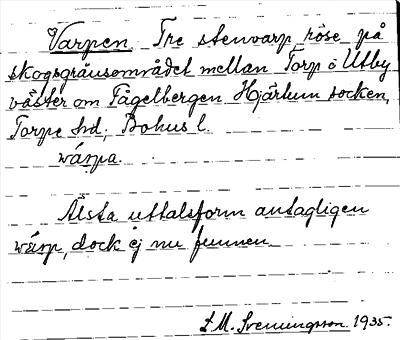 Varpen. Tre stenvarp, röse, på
skogsgränsområdet mellan Torp o Utby
väster om Fågelbergen Hjärtum socken,
Torpe hd, Bohus l.
wárpa.
Älsta uttalsform antagligen
wárp, dock ej nu funnen.
L M. Svenningsson 1935.